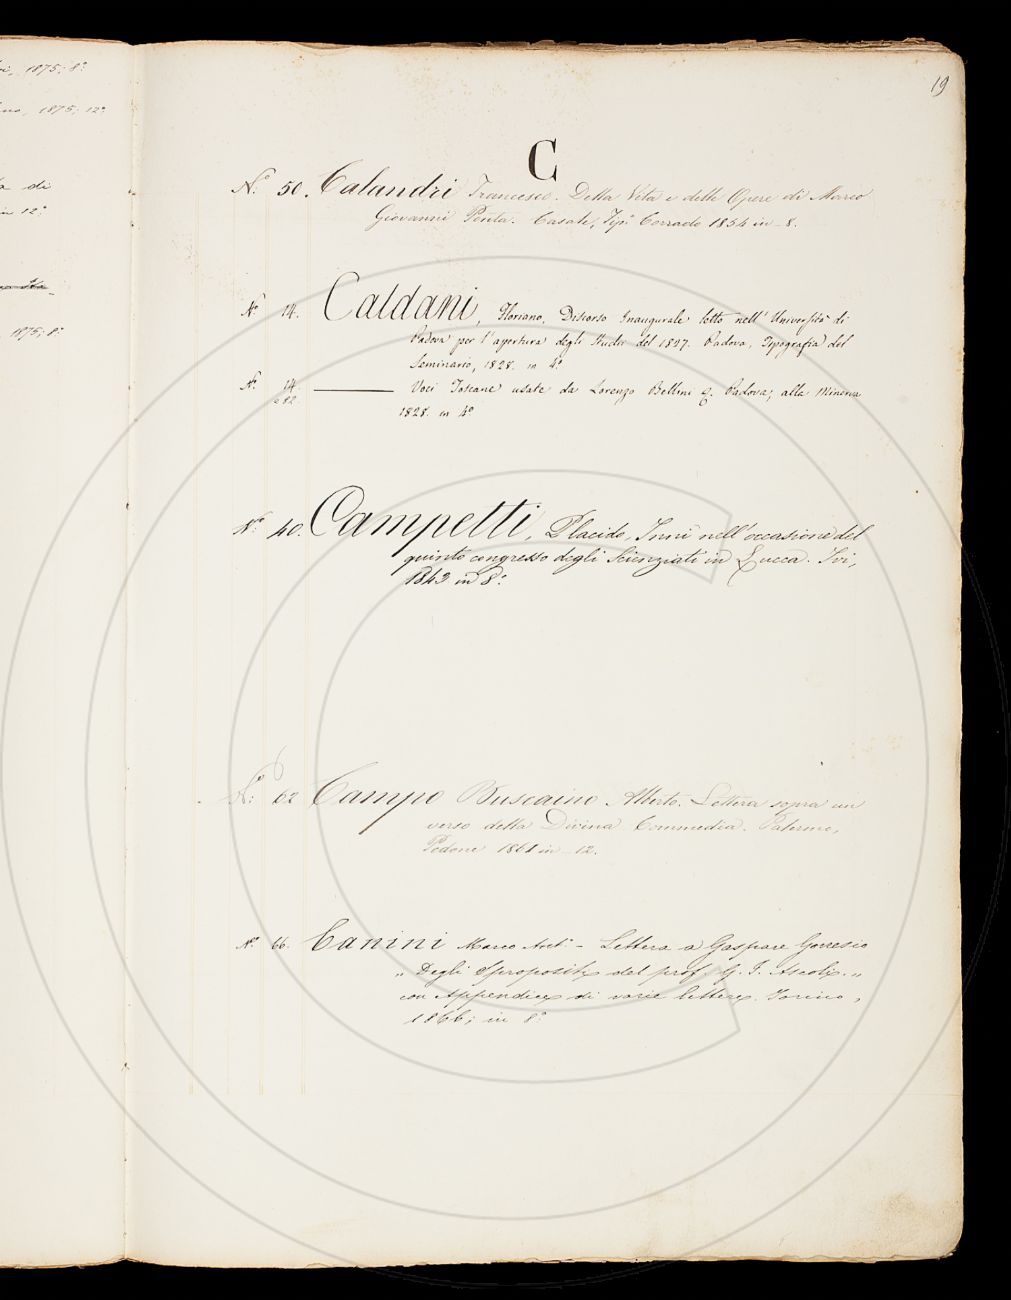 19
ri, 1875; 8º
1875; 12º
di
in 12º
1875; 8º
C
N.º 50. Calandri Francesco. Della Vita e delle Opere di Marco
Giovanni Ponta. Casale, Tip.ª Corrado 1854 in-8.
Nº 14. Caldani, Floriano, Discorso Inaugurale letto nell'Università di
Padova per l'apertura degli Studii del 1827. Padova, Tipografia del
Seminario, 1828. in 4º
Nº 14. ——— Voci Toscane usate da Lorenzo Bellini &. Padova, alla Minerva
682.
1828. in 4º
Nº 40. Campetti, Placido, Inni nell'occasione del
quinto congresso degli Scienziati in Lucca. Ivi,
1843 in 8º.
Nº: 62 Campo Buscaino Alberto. Lettera sopra un
verso della Divina Commedia. Palermo,
Pedone 1861 in-12.
Nº 66. Canini Marco Ant.º - Lettera a Gaspare Gorresio
„ Degli Spropositi del prof. G. I. Ascoli. „
con Appendice di varie lettere. Torino,
1866; in 8º